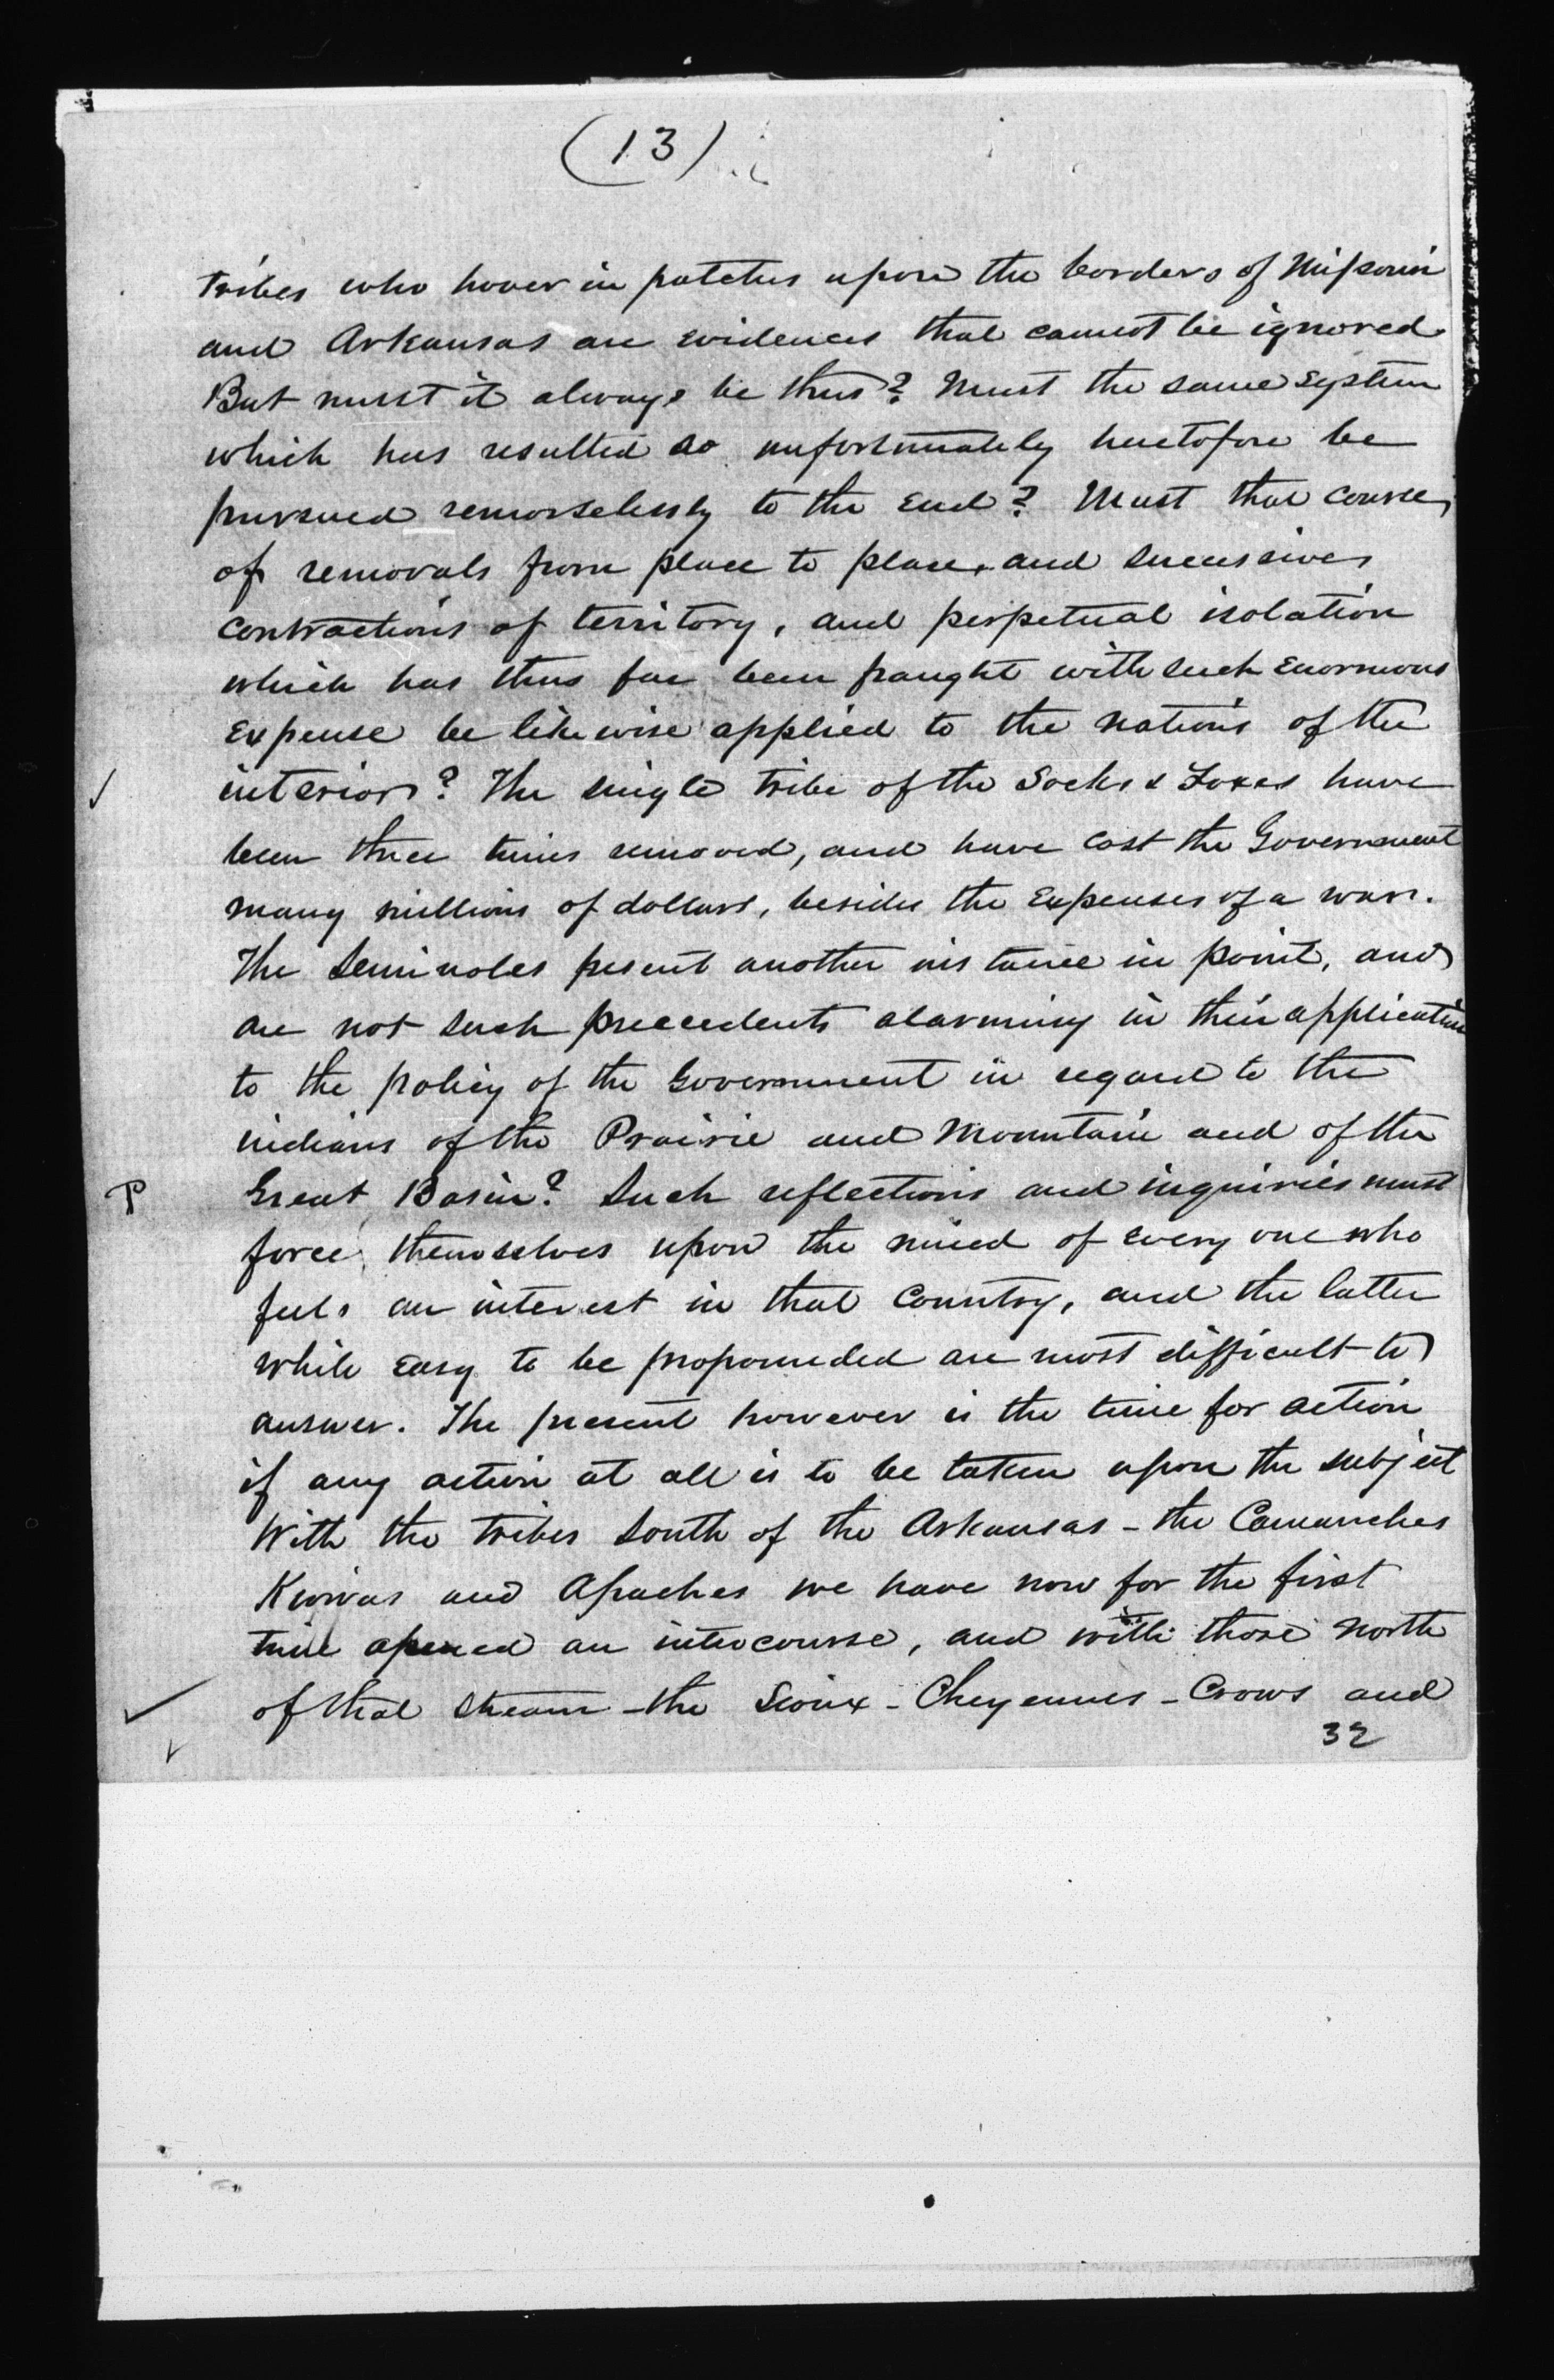 (13)
tribes who hover in patches upon the borders of Missouri
and Arkansas are evidences that cannot be ignored
But must it always be thus? Must the same system
which has resulted so unfortunately heretofore be
pursued remorselessly to the end? Must that course,
of removals from place to place, and successive
contractions of territory, and perpetual isolation
which has thus far been fraught with such enormous
expense be likewise applied to the nations of the
interior? The single tribe of the Socks & Foxes have
been three times removed, and have cost the Government
many millions of dollars, besides the expenses of a war.
The Seminoles present another instance in point, and
are not such precedents alarming in their application
to the policy of the Government in regard to the
indians of the Prairie and Mountain and of the
P Great Basin? Such reflections and inquiries must
force themselves upon the mind of every one who
feels an interest in that Country, and the latter
while easy to be propounded are most difficult to
answer. The present however is the time for action
if any action at all is to be taken upon the subject
With the tribes South of the Arkansas - the Camanches
Kiowas and Apaches we have now for the first
time opened an intercourse, and with those north
of that stream - the Sioux - Cheyennes - Crows and
32